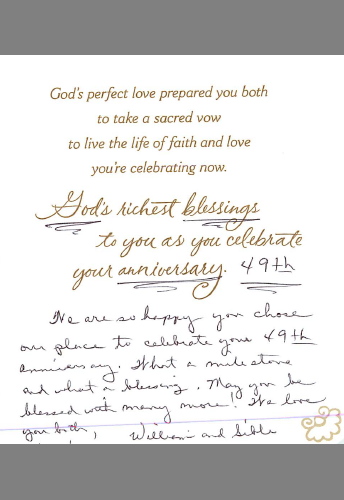 God's perfect love prepared you both
to take a sacred vow
to live the life of faith and love
you're celebrating now.
God's richest blessings
to you as you celebrate
your anniversary. 49th
We are so happy you chose
our place to celebrate your 49th
anniversary. What a milestone
and what a blessing. May you be
blessed with many more! We love
you both, William and Sible